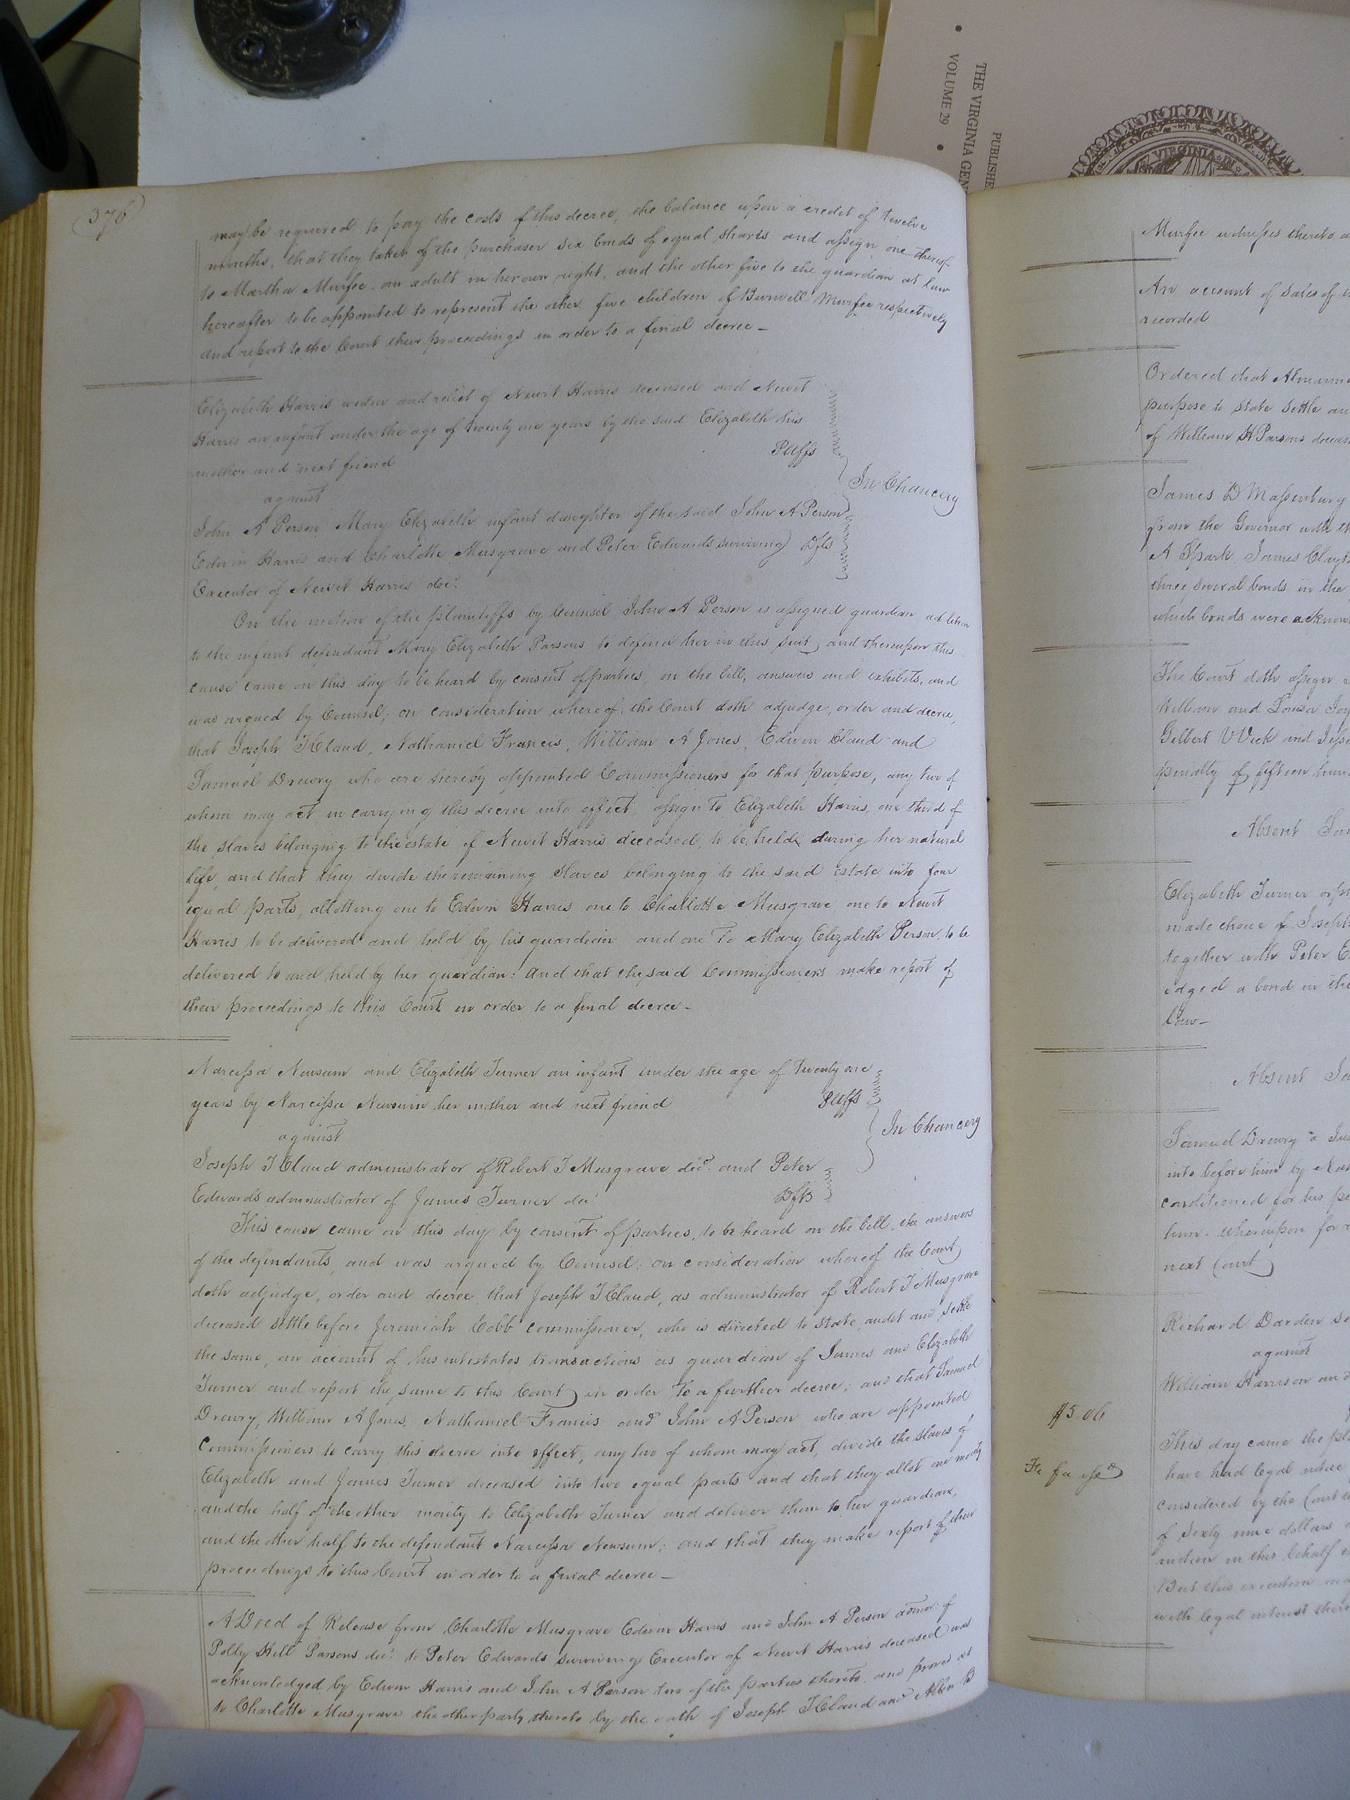 376
may be required to pay the costs of this decree, the balance upon a credit of twelve
months, that they take of the purchaser six bonds of equal shares and assign one thereof
to Martha Murfee an adult in her own right, and the other five to the guardian at law
hereafter to be appointed to represent the other five children of Burwell Murfee respectively
and report to the Court their proceedings in order to a final decree—
Elizabeth Harris widow and relict of Newit Harris deceased and Newit
Harris an infant under the age of twenty one years by the said Elizabeth his
mother and next friend Pltffs
against
In Chancery
John A Person Mary Elizabeth infant daughter of the said John A Person
Edwin Harris and Charlotte Musgrave and Peter Edwards surviving Dfts
Executor of Newit Harris decd.
On the motion of the plaintiffs by Counsel John A Person is assigned guardian ad litem
to the infant defendant Mary Elizabeth Parsons to defend her in this suit, and thereupon this
cause came on this day to be heard by consent of parties, on the bill, answers and exhibits, and
was argued by Counsel; on consideration whereof, the Court doth adjudge, order and decree,
that Joseph T Claud, Nathaniel Francis, William A Jones, Edwin Claud and
Samuel Drewry who are hereby appointed Commissioners for that purpose, any two of
whom may act in carrying this decree into effect, assign to Elizabeth Harris, one third of
the slaves belonging to the estate of Newit Harris deceased, to be held during her natural
life, and that they divide the remaining slaves belonging to the said estate into four
equal parts, allotting one to Edwin Harris one to Charlotte Musgrave one to Newit
Harris to be delivered and held by his guardian and one to Mary Elizabeth Person, to be
delivered to and held by her guardian: And that the said Commissioners make report of
their proceedings to this Court in order to a final decree—
Narcissa Newsum and Elizabeth Turner an infant under the age of twenty one
years by Narcissa Newsum her mother and next friend Pltffs
against
In Chancery
Joseph T Claud administrator of Robert T Musgrave decd. and Peter
Edwards administrator of James Turner decd Dfts
This cause came on this day by consent of parties, to be heard on the bill, the answers
of the defendants, and was argued by Counsel: on consideration whereof the Court
doth adjudge, order and decree, that Joseph T Claud, as administrator of Robert T Musgrave
deceased settle before Jeremiah Cobb commissioner, who is directed to state, audit and settle
the same, an account of his intestates transactions as guardian of James and Elizabeth
Turner and report the same to this Court, in order to a further decree; and that Samuel
Drewry, William A Jones, Nathaniel Francis and John A Person who are appointed
Commissioners to carry this decree into effect, any two of whom may act, divide the slaves of
Elizabeth and James Turner deceased into two equal parts and that they allot one moity
and the half of the other moity to Elizabeth Turner and deliver them to her guardian,
and the other half to the defendant Narcissa Newsum; and that they make report of their
proceedings to this Court in order to a final decree—
A Deed of Release from Charlotte Musgrave Edwin Harris and John A Person admor. of
Polly Hill Parsons decd. to Peter Edwards surviving Executor of Newit Harris deceased was
acknowledged by Edwin Harris and John A Person two of the parties thereto and proved as
to Charlotte Musgrave the other party thereto by the oath of Joseph T Claud and
Murfee witnesses thereto
An account of Sales of
recorded
Ordered that
purpose to state settle
of William H Parsons
James D Massenburg
from the Governor with
A Spark, James
three several bonds in the
which bonds were
The Court doth assign
William and Louisa
Gilbert V Vick and
penalty of fifteen
Absent
Elizabeth Turner
made choice of Joseph
together with Peter
edged a bond in the
law—
Absent
Samuel Drewry a
into before him by
conditioned for his
him. whereupon for
next Court
Richard Darden
against
William Harrison and
$5.06
This day came the
Fi fa
have had legal notice
considered by the Court
of Sixty nine dollars
motion in this behalf
But this execution
with legal interest
THE VIRGINIA
VOLUME 29
VIRGINIA